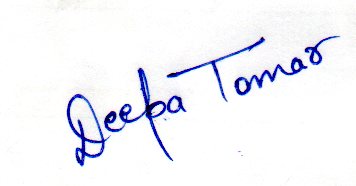 Deepa Tomar